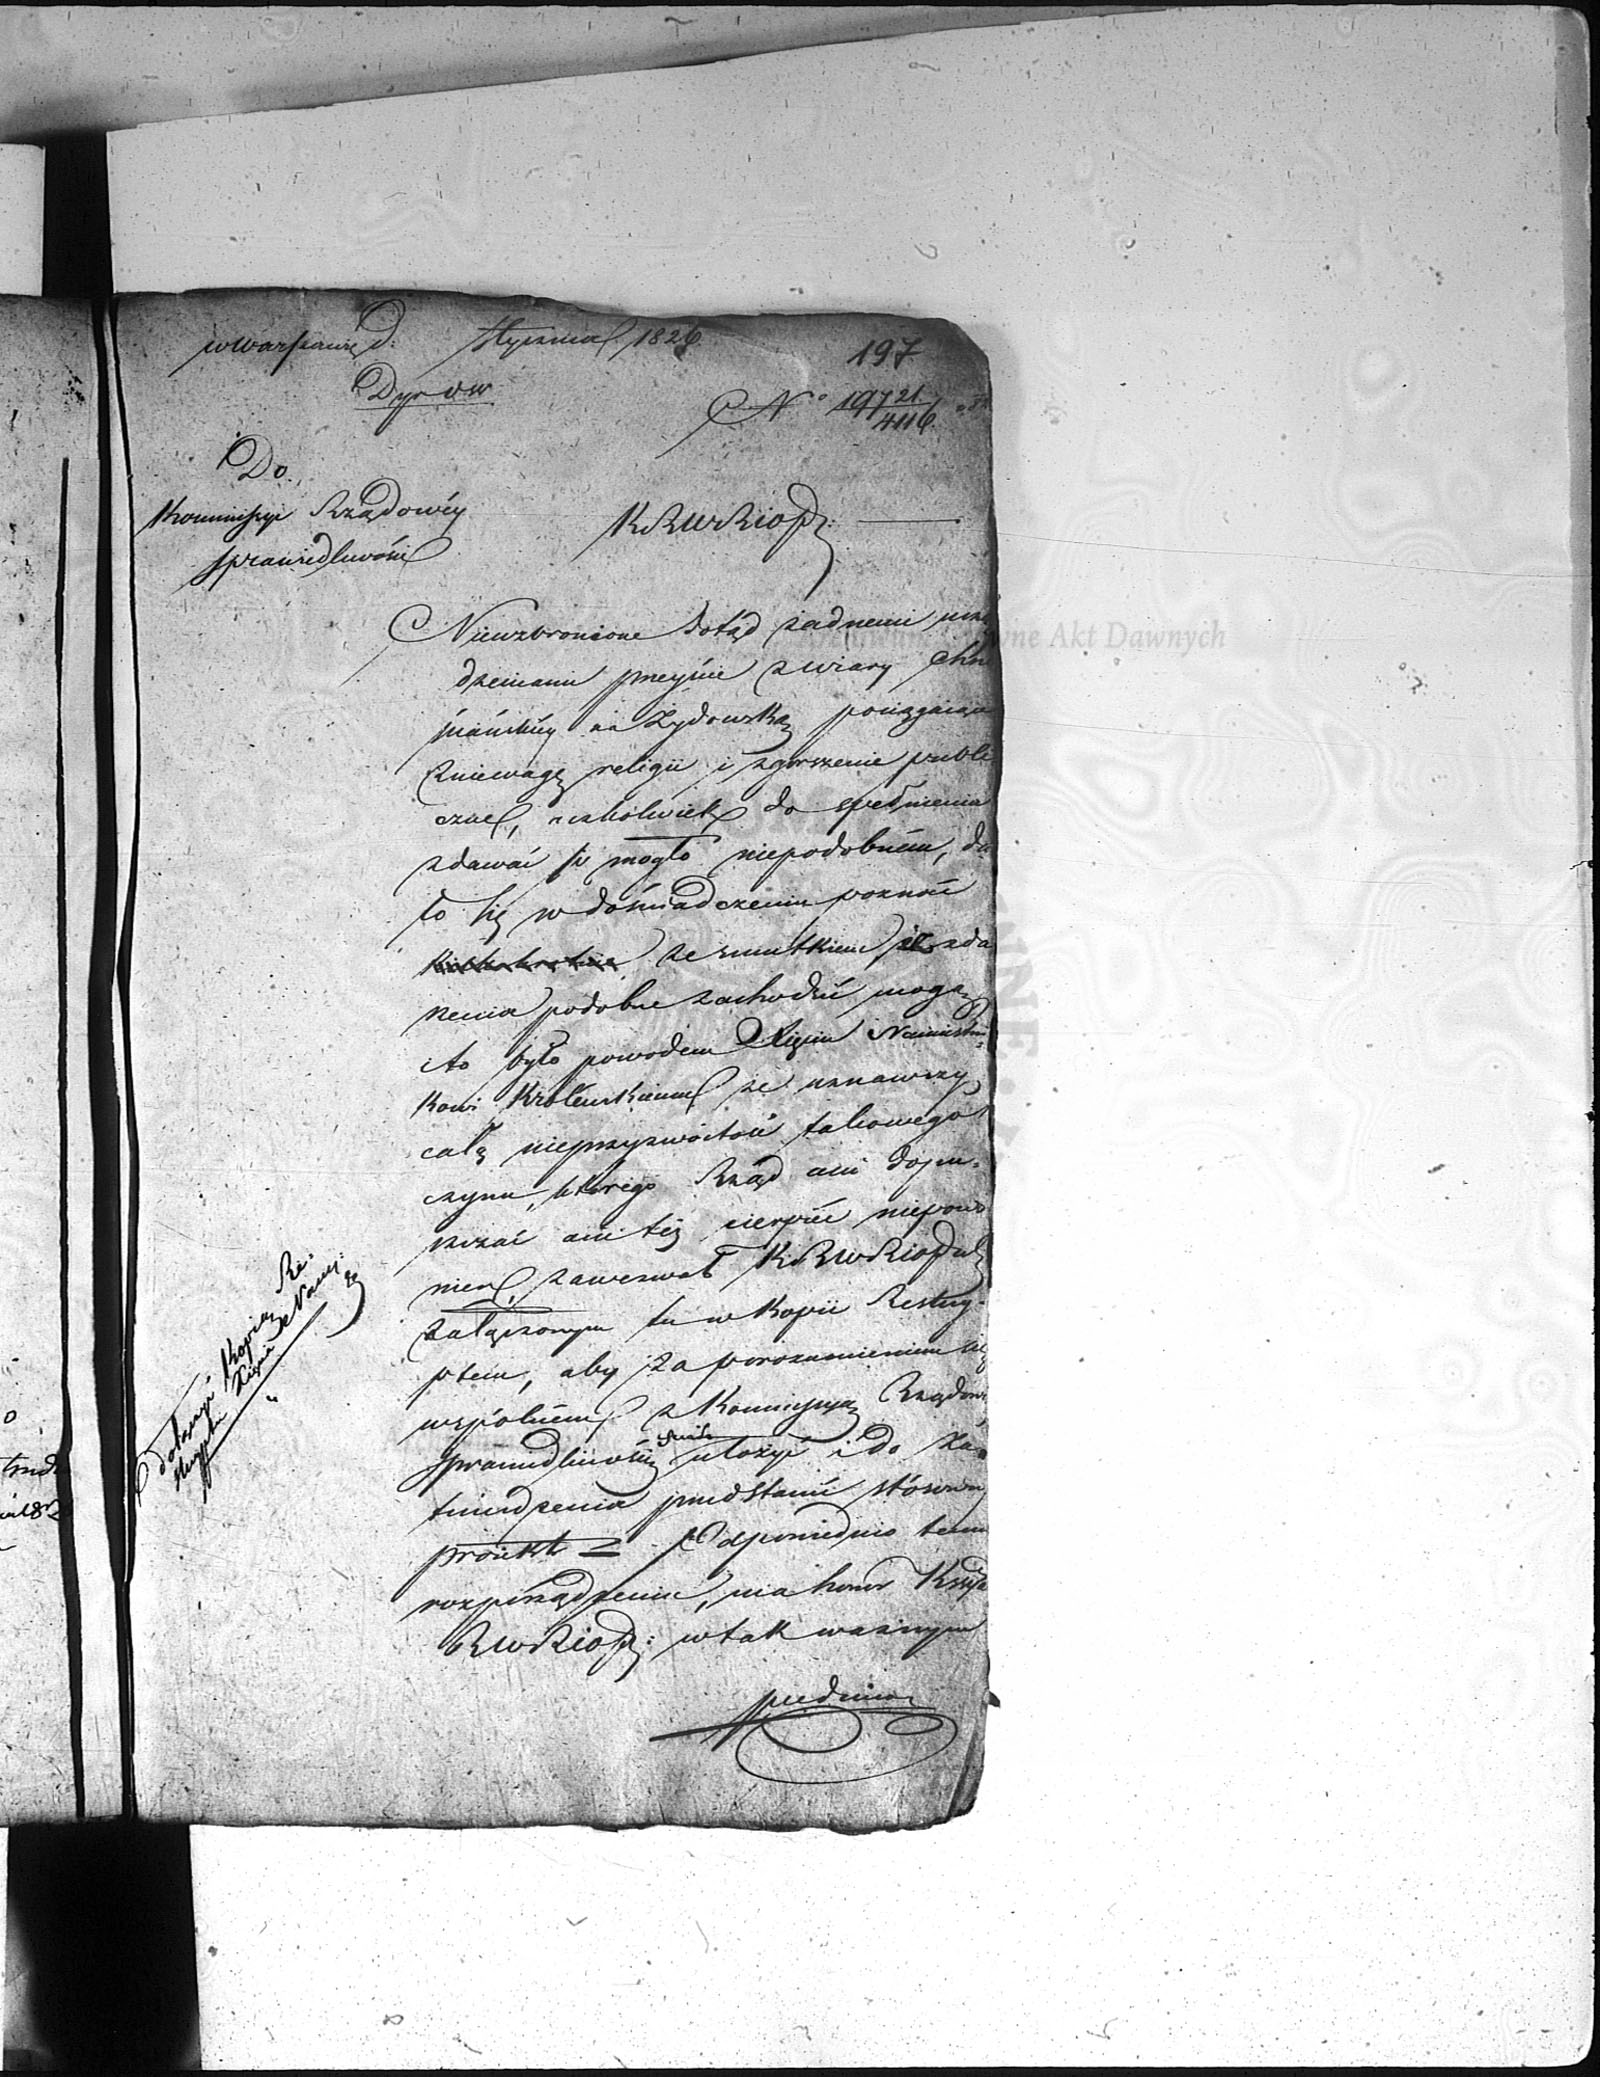 w Warszawie d: Stycznia 1826
197
Dyr WW
No 19721/4116
Do
Kommissyi Rządowéy
Sprawiedliwości
KRWRiOP:
Niewzbronione dotąd żadnemi urzą
dzeniami przeyście z wiary Chrze
ściańskiéy na Żydowską pociągaiące
zniewagę religii i zgorszenie publi
czne, aczkolwiek do spełnienia
zdawać się mogło niepodobném, da
ło się w doświadczeniu poznać
ze smutkiem że zda
rzenia podobne zachodzić mogą,
to było powodem Xięciu Namiestni
kowi Królewskiemu że uznawszy
całą nieprzyzwoitość takowego
czynu, którego Rząd ani dopu
szczać ani téż cierpiéć niepowi
nien, zawezwał KRWRiOP
załączonym tu w Kopii Reskry
ptem, aby za porozumieniem się
wspólném z Kommissyą Rządową
Sprawiedliwości ułożyć i do za
twierdzenia przedstawić stósowny
proiekt = Odpowiednio temu
rozporządzeniu, ma honor Kssya
RWRiOP: w tak ważnym
przedmio
dołączyć Kopią Re
skryptu Xięcia Namy:
Akt Dawnych